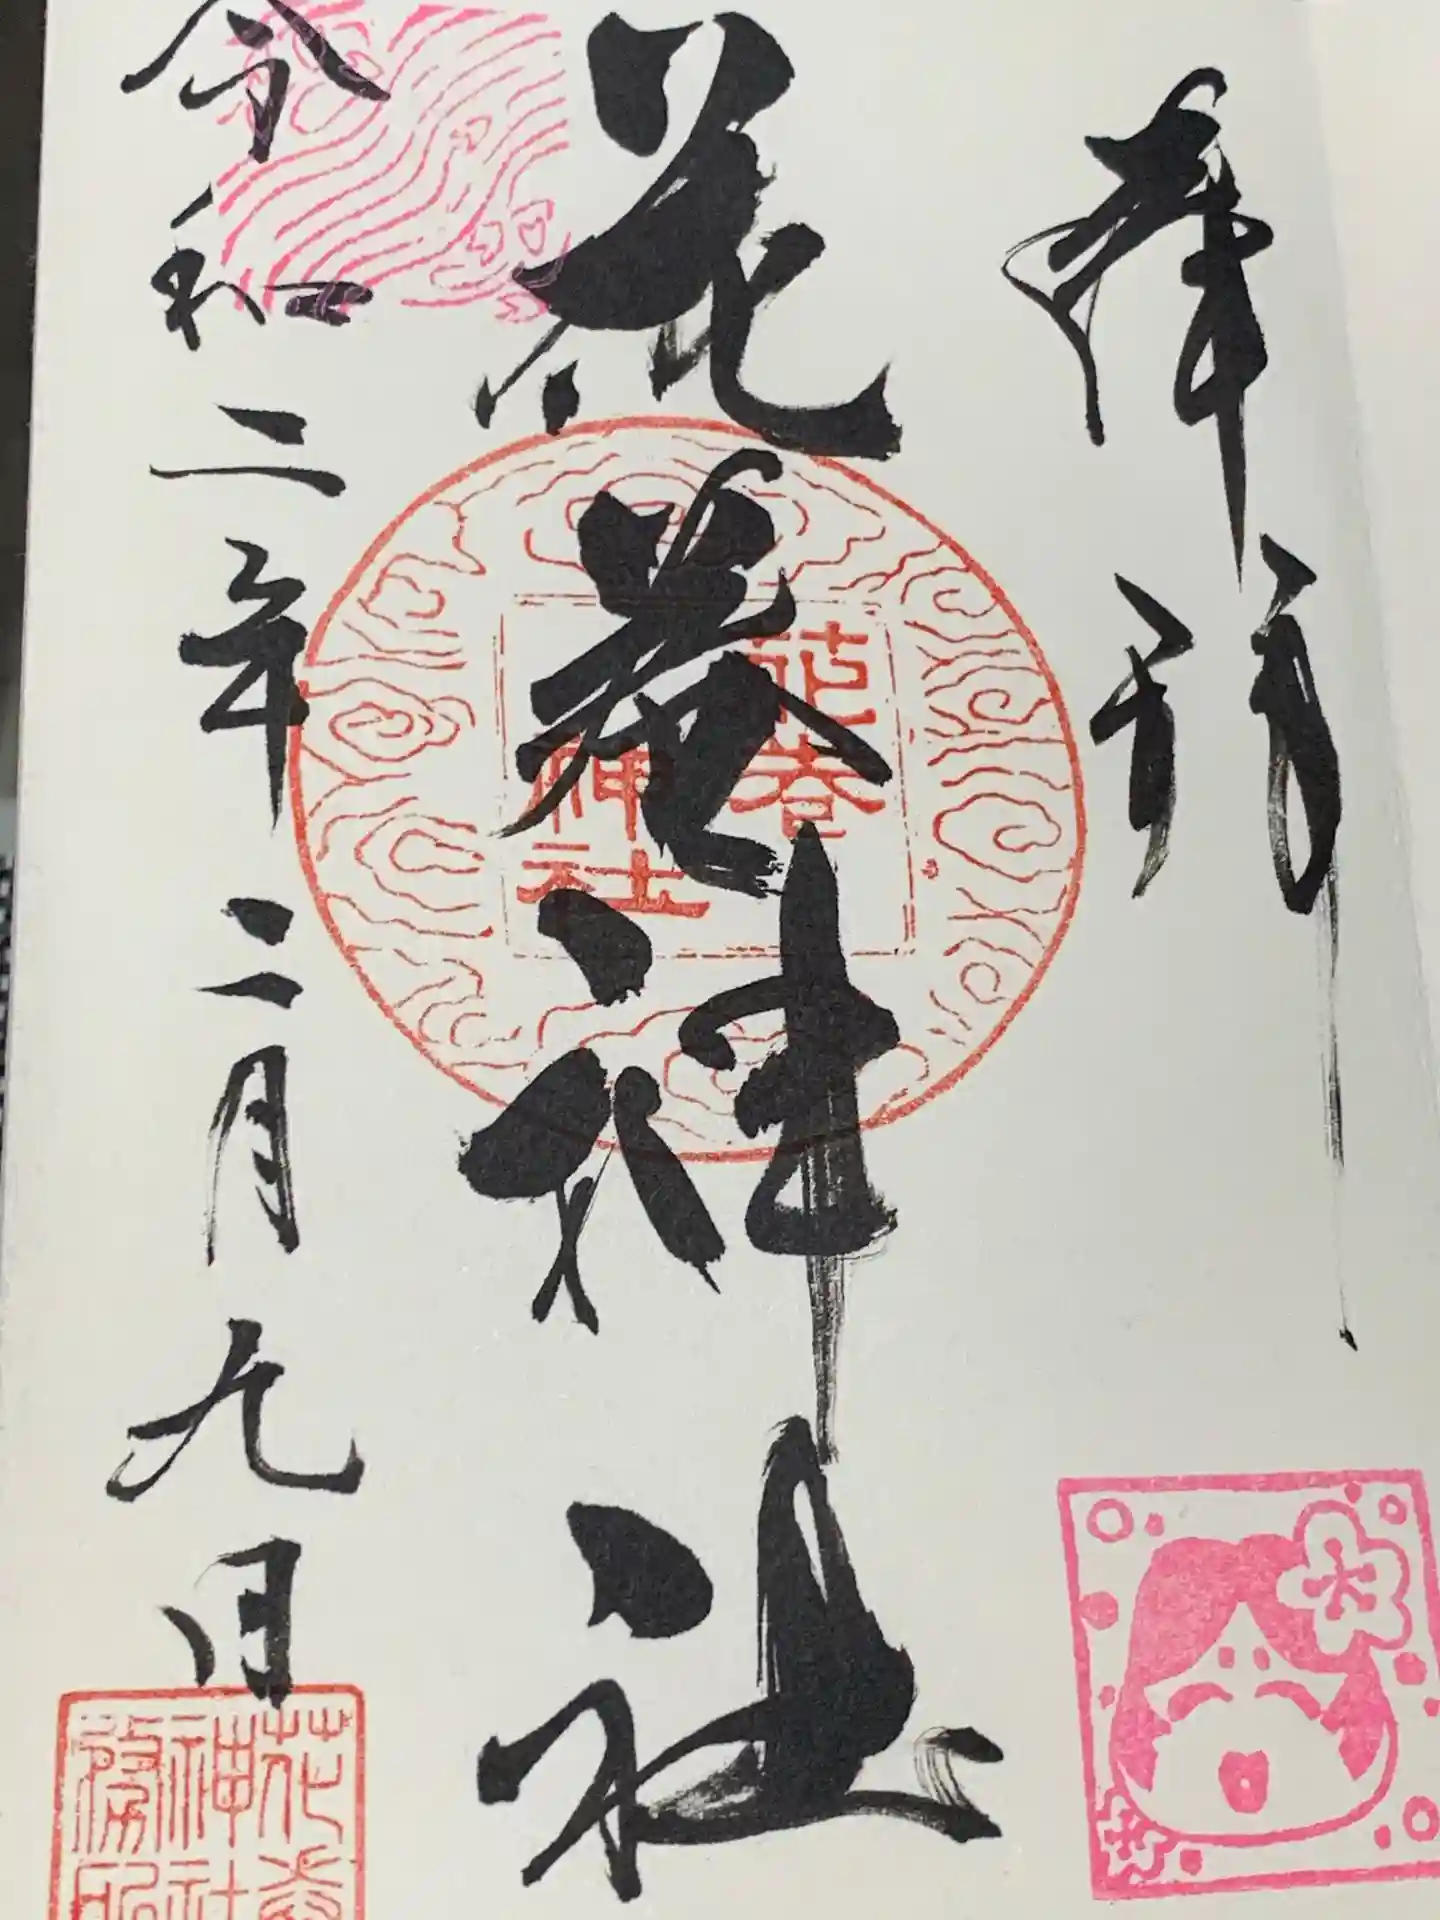 奉拝
花巻神社
令和二年二月九日
花巻
神社
花巻
神社
務所